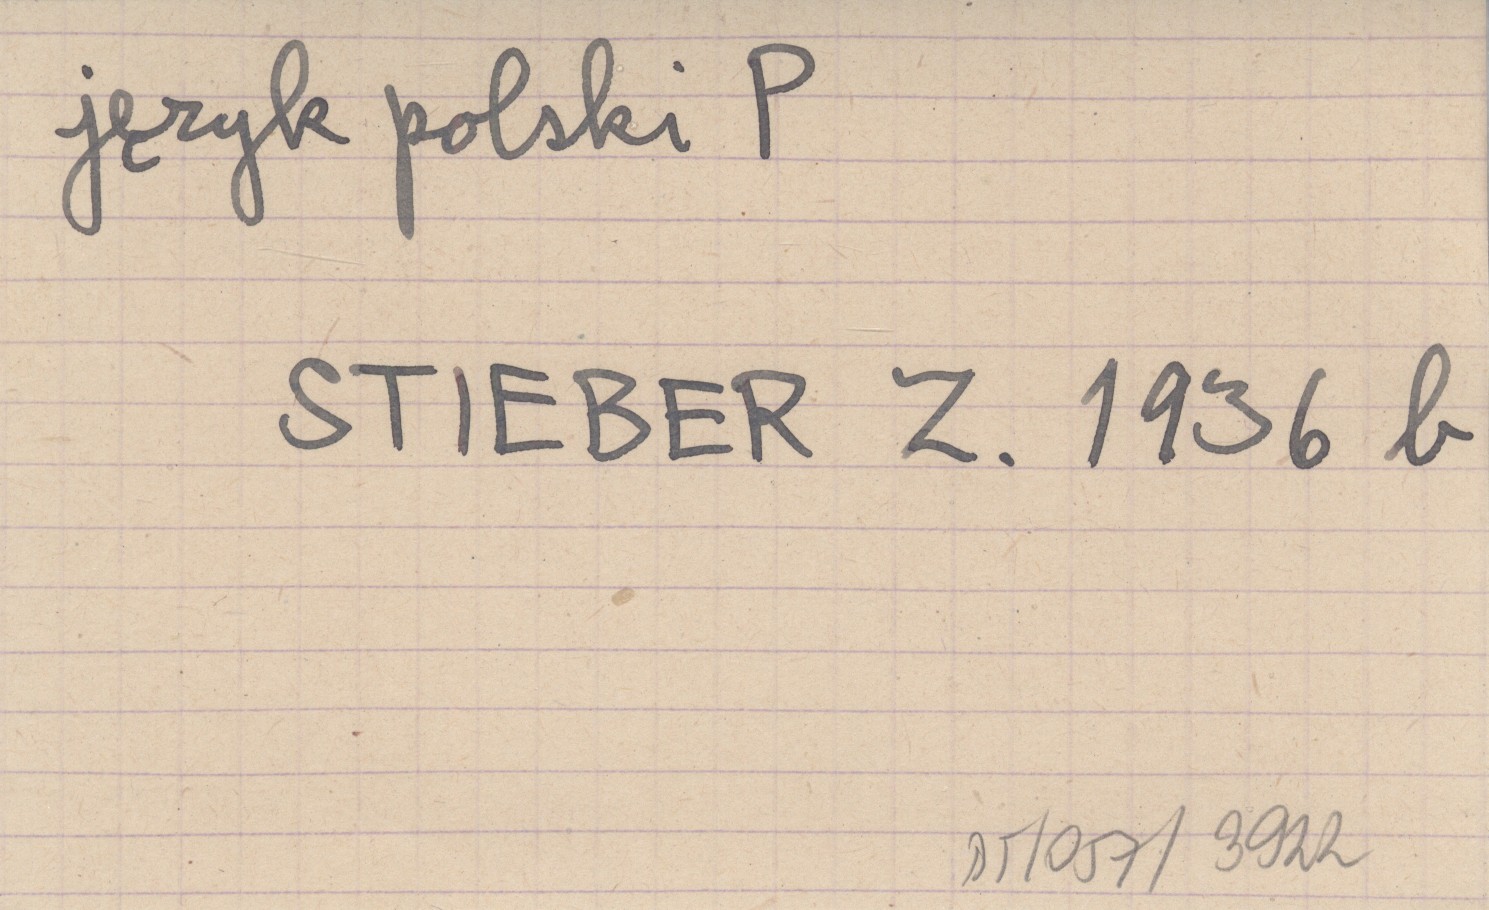 język polski P
STIEBER Z. 1936 b
DT/057/3922